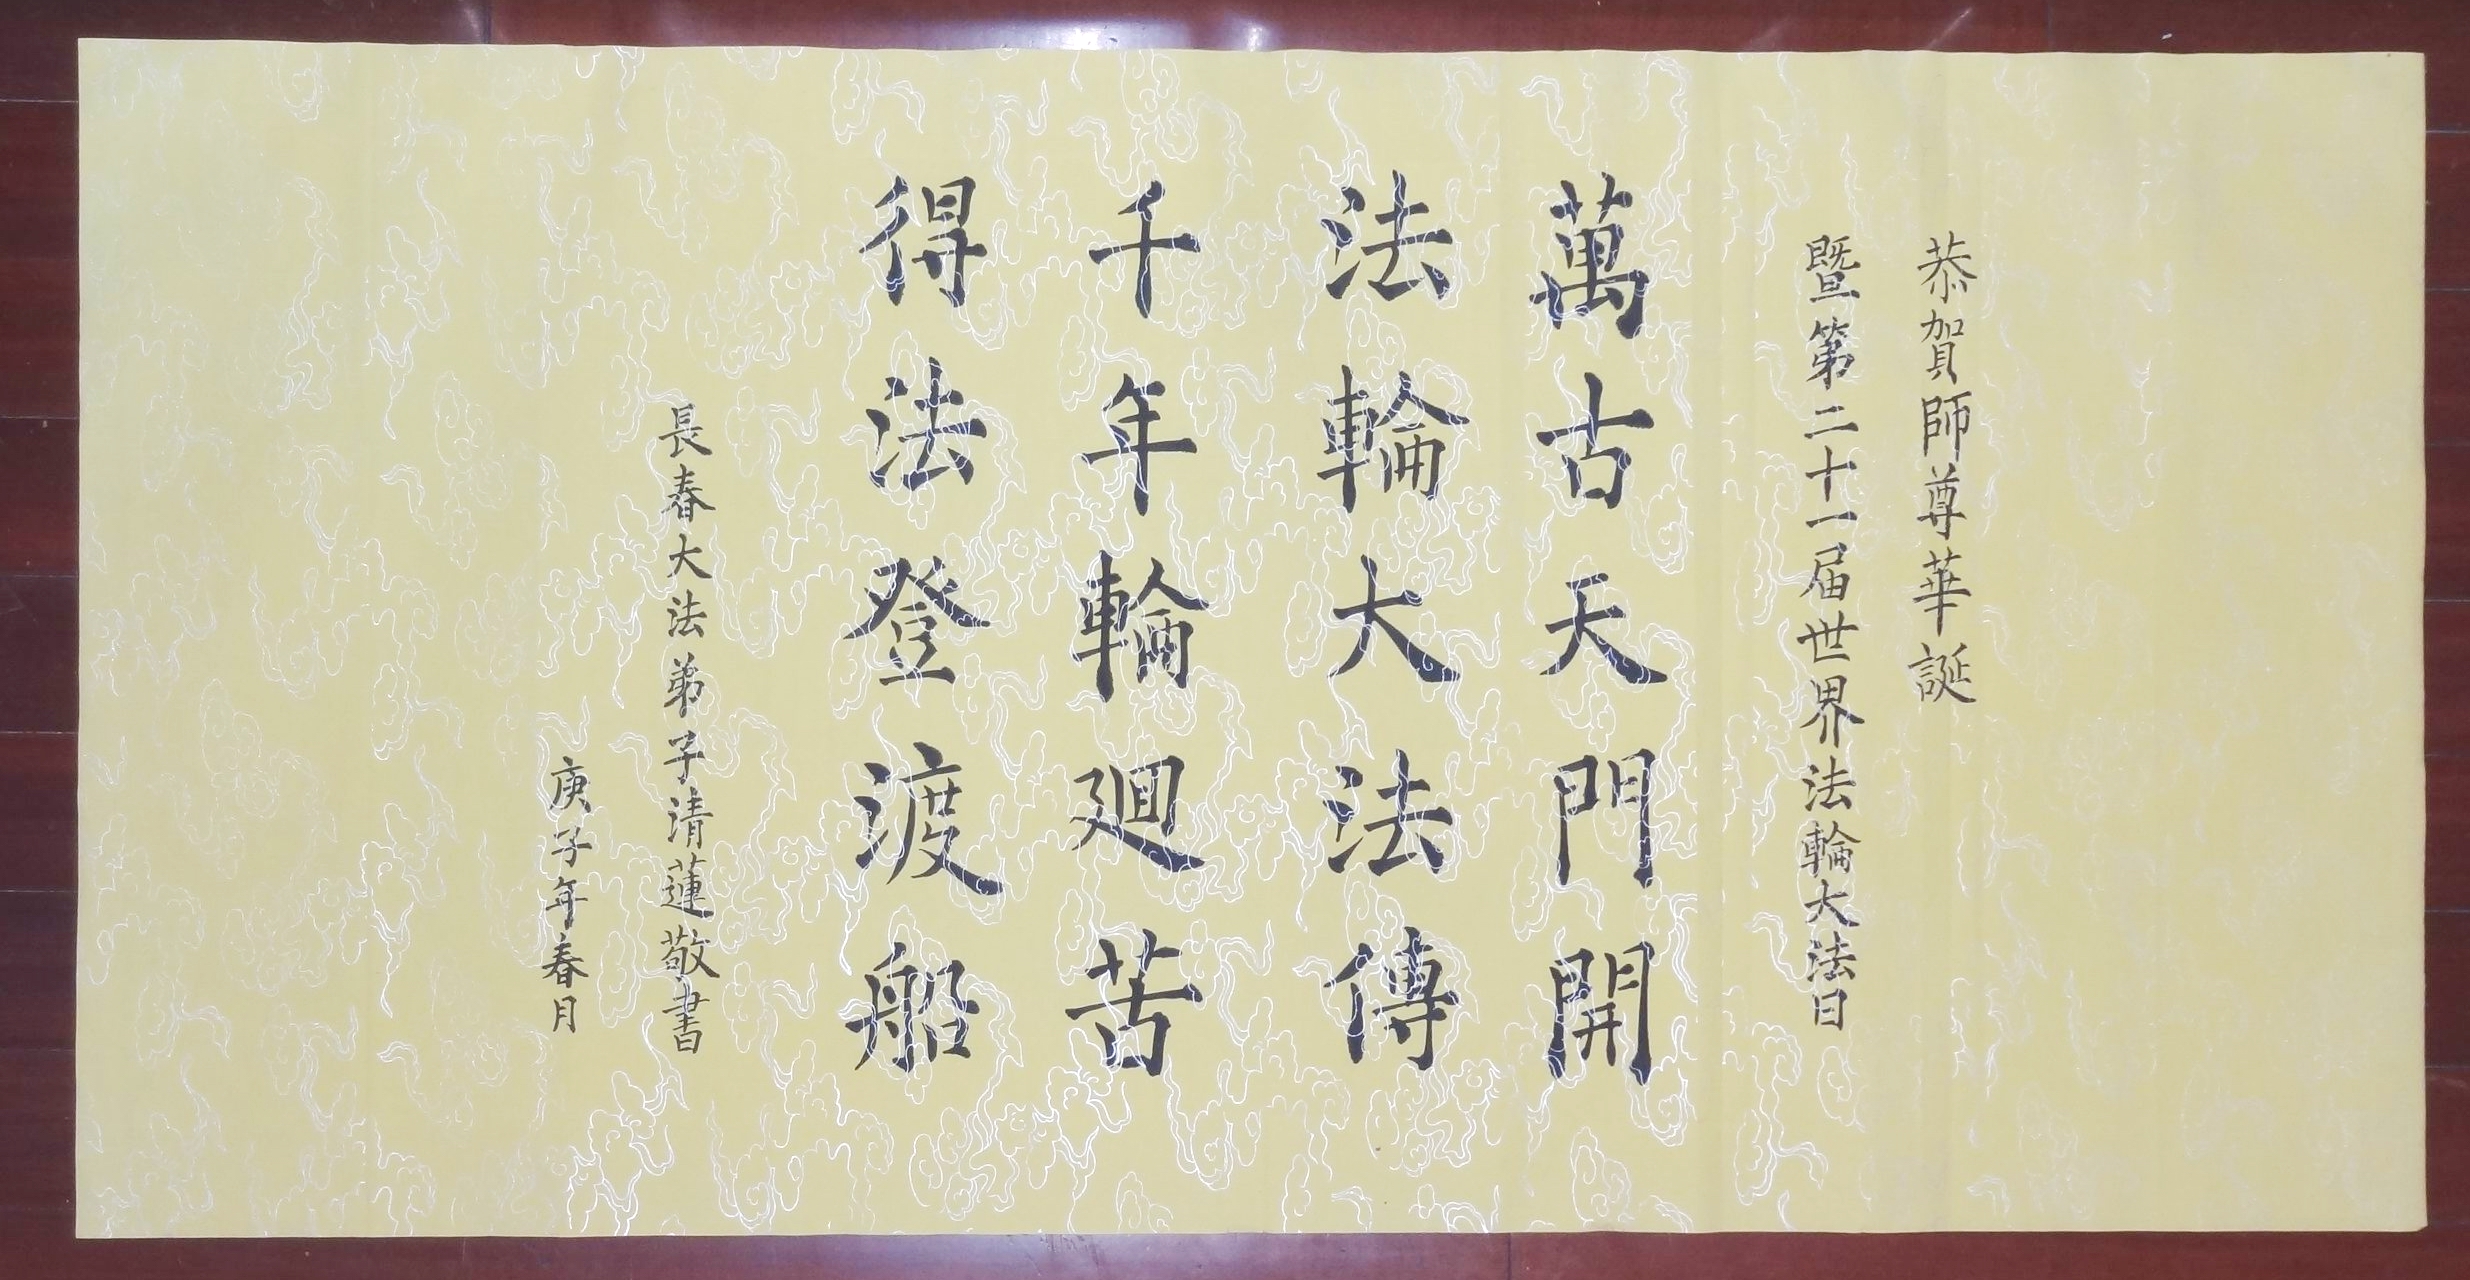 恭賀師尊華誕
暨第二十一届世界法輪大法日
萬古天門開
法輪大法傳
千年輪廻苦
得法登渡船
長春大法弟子清蓮敬書
庚子年春月